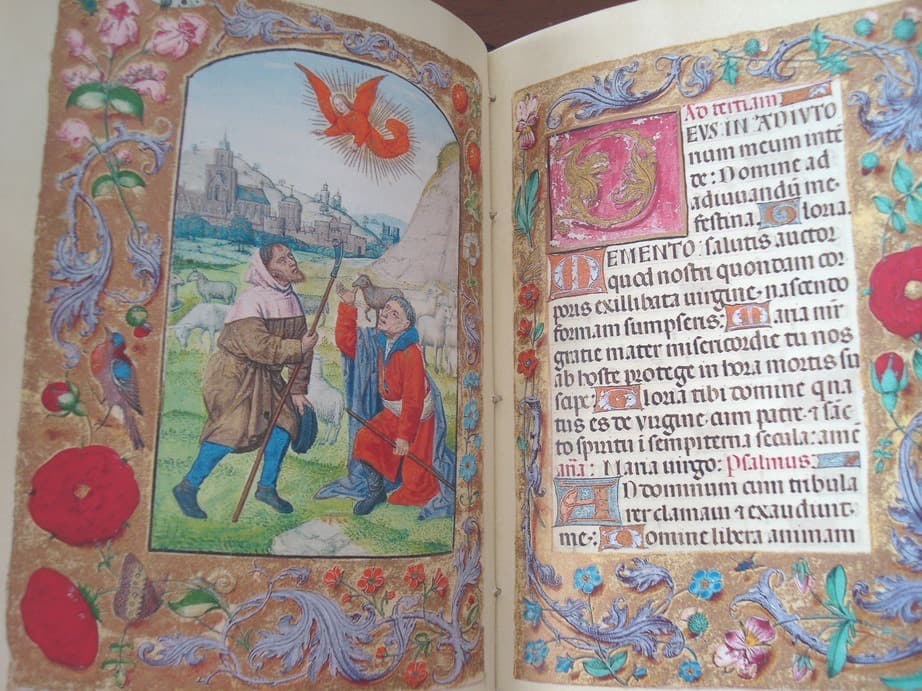 Ad tertiam
DEUS IN ADIUTO
rium meum inte
de: Domine ad
adiuvandū me
festina Gloria.
MEMENTO salutis auctor
quod nostri quondam cor
poris ex illibata virgine nascendo
formam sumpseris: Maria mr̄
gratie mater misericordie tu nos
ab hoste protege in hora mortis su
scipe: Gloria tibi domine qua
tus es de virgine cum patre & sāc
to spiritu ī sempiterna secula: amē
añā: Maria virgo: Psalmus:
AD dominum cum tribula
rer clamavi & exaudivit
me: Domine libera animam